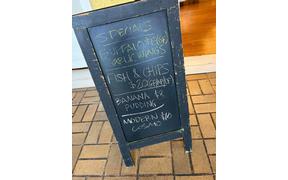 SPECIALS
BUFFALO
GARLIC WINGS
FISH & CHIPS
BANANA $8
PUDDING
MODERN
COSMO